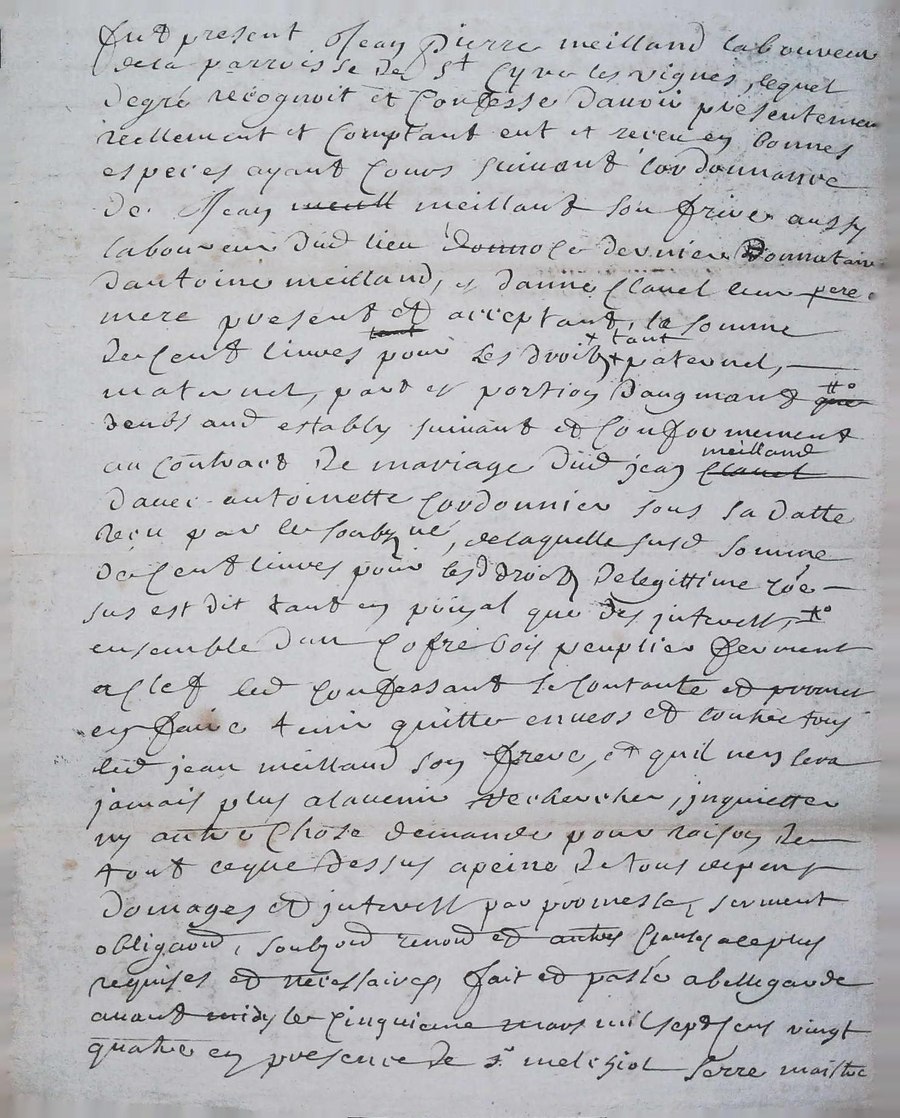 fut present Jean Pierre meilland laboureur
dela parroisse de St Cyre les vignes, lequel
degré recognoit et Confesse davoir presentemen
reellement et Comptant eut et receu en bonnes
especes ayant Cours suivant lordonnance
de Jean meill meillant son frere aussy
laboureur dud lieu donno le dernier donnataire
dantoine meilland, et danne Clauel leur pere
mere present et acceptant, la somme
de Cent livres pour les droits tant paternel,
maternel, part et portion daugmand que
deubs aud estably suivant et Conformement
au Contract de mariage dud jean Clauel meilland
davec antoinette Cordonnier sous sa datte
reçu par le soubzné, delaquelle susd somme
de Cent livres pour lesd droits delegittime Coe
sus est dit tant en pnipal que des interests,
ensemble dun Cofre bois peuplier ferment
a Clef led Confessant se Contante et promet
en faire tenir quitte envers et contre tous
led jean meilland son frere, et quil nen sera
jamais plus alauenir Rechercher, inquietter
ny autre Chose demande pour raison de
tout ceque dessus apeine de tous depens
domages et interests par promesse, serment
obligaond, soubzond renond et autres Clauses aceplus
requises et necessaires, fait et passé abellegarde
auant midy le Cinquieme mars mil sept Cens vingt
quatre en presence de sr melchiol Serre maistre